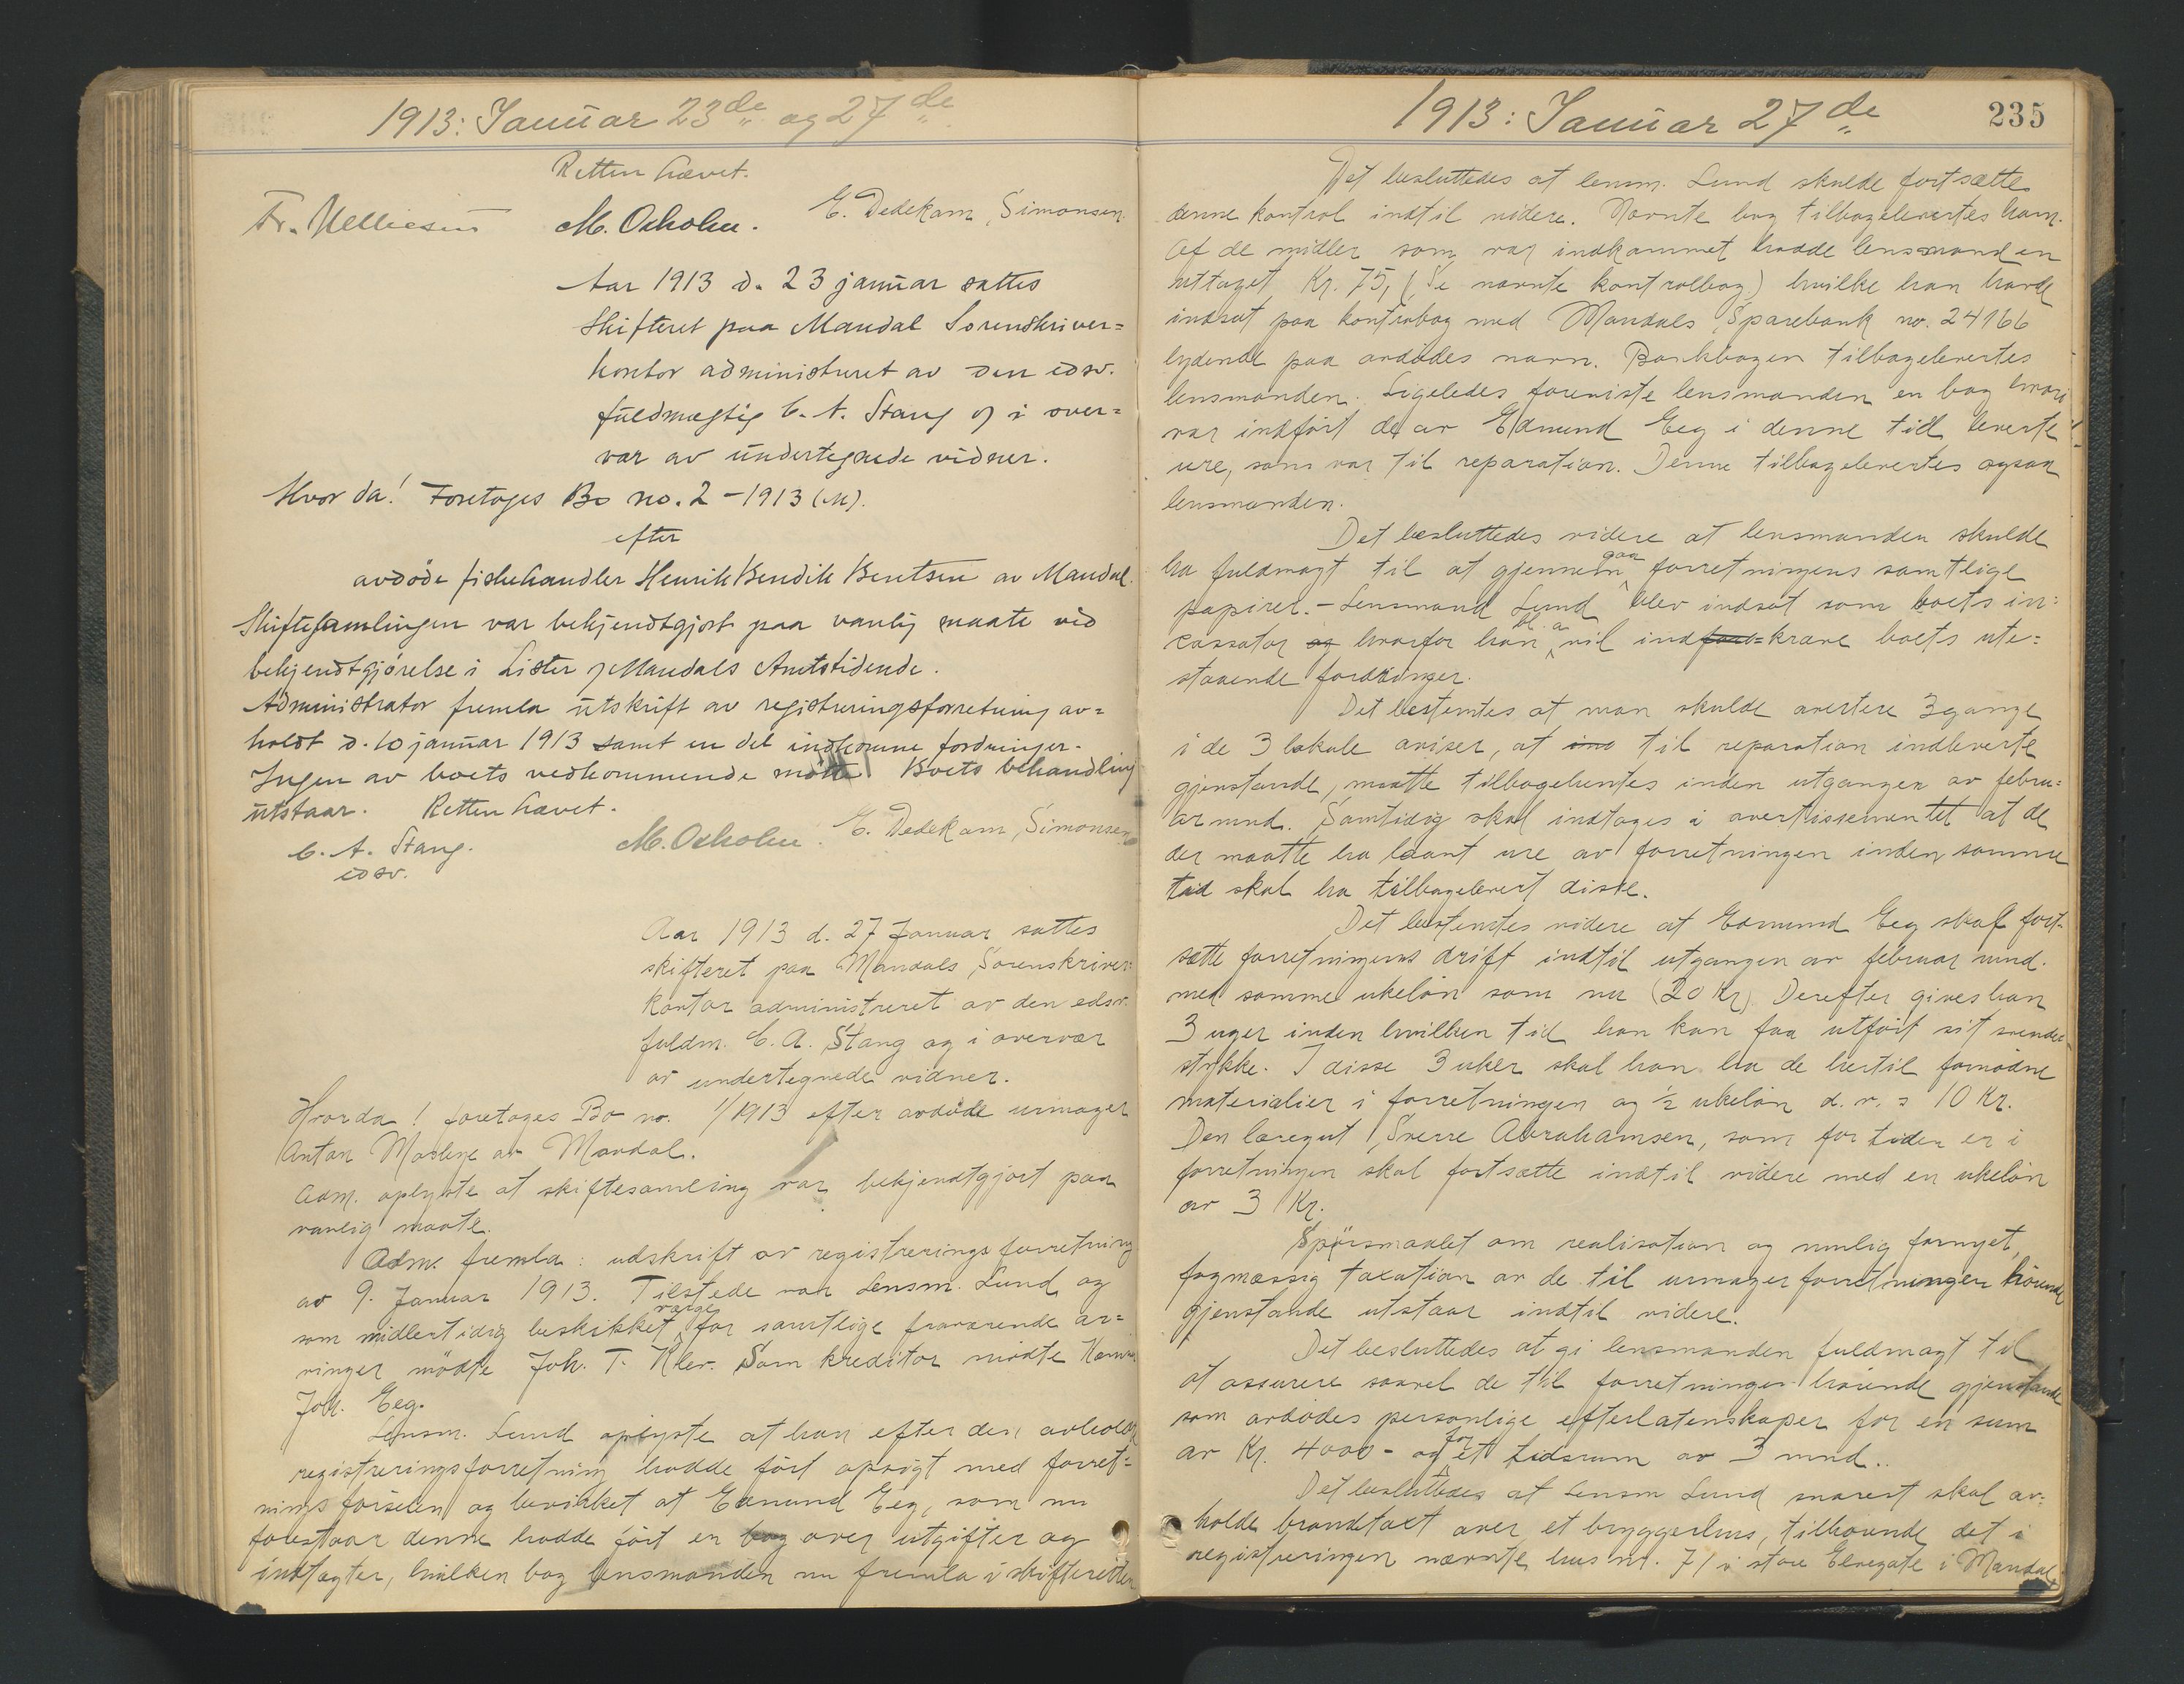 1913: Januar 23de og 27de
Retten hævet.
M. Oxholm. E. Dedekam, Simonsen
Aar 1913 d. 23 januar sattes
Skifteret paa Mandal Sorenskriver=
kontor administreret av den edsv.
fuldmægtig C. A. Stang og i over=
vær av undertegnede vidner.
Hvor da! Foretoges Bo no. 2 - 1913 (M).
efter
avdøde fiskehandler Henrik Bendik Bentsen av Mandal.
Skiftesamlingen var bekjendtgjort paa vanlig maate ved
bekjendtgjørelse i Lister og Mandals Amtstidende.
Administrator fremla utskrift av registreringsforretning av=
holdt d. 10 januar 1913 samt en del indkomne fordringer.
Ingen av boets vedkommende møtte. Boets behandling
utstaar. Retten hævet.
C. A. Stang. M. Oxholm. E. Dedekam, Simonsen
edsv.
Aar 1913 d. 27 Januar sattes
skifteret paa Mandals Sorenskriver=
kontor administreret av den edsv.
fuldm. C. A. Stang og i overvær
av undertegnede vidner.
Hvorda! foretoges Bo no. 1/1913 efter avdøde urmager
Anton av Mandal.
Adm. oplyste at skiftesamling var bekjendtgjort paa
vanlig maate.
Adm. fremla: udskrift av registreringsforretning
av 9. Januar 1913. Tilstede var Lensm. Lund og
som midlertidig beskikket værge for samtlige fraværende ar=
vinger mødte Joh. T. Som kreditor mødte
Joh. Eeg.
Lensm. Lund oplyste at han efter den avholdte
registreringsforretning hadde ført opsigt med forret=
ningsførselen og bevirket at Edmund Eeg, som nu
forestaar denne hadde ført en bog over utgifter og
indtægter, hvilken bog lensmanden nu fremla i skifteretten
1913: Januar 27de 235
Det besluttedes at lensm. Lund skulde fortsætte
denne kontrol indtil videre. Nævnte bog tilbagelevertes ham.
Af de midler som var indkommet hadde lensmanden
uttaget Kr. 75, (Se nævnte kontrolbog) hvilke han havde
indsat paa kontrabog med Mandals Sparebank no. 24166
lydende paa avdødes navn. Bankbogen tilbagelevertes
lensmanden. Ligeledes foreviste lensmanden en bog hvori
var indført de av Edmund Eeg i denne tid leverte
ure, som var til reparation. Denne tilbagelevertes ogsaa
lensmanden.
Det besluttedes videre at lensmanden skulde
ha fuldmagt til at gjennemgaa forretningens samtlige
papirer. - Lensmand Lund blev indsat som boets in=
cassator og hvorfor han bl. a. vil indford=kræve boets ute=
staaende fordringer.
Det bestemtes at man skulde avertere 3 gange
i de 3 lokale aviser, at ind til reparation indleverte
gjenstande, maatte tilbagehentes inden utgangen av febru=
ar mnd. Samtidig skal indtages i avertissementet at de
der maatte ha laant ure av forretningen inden samme
tid skal ha tilbagelevert disse.
Det bestemtes videre at Edmund Eeg skal fort-
sætte forretningens drift indtil utgangen av februar mnd.
med samme ukeløn som nu (20 Kr). Derefter gives han
3 uger inden hvilken tid han kan faa utført sit svende-
stykke. I disse 3 uker skal han ha de hertil fornødne
materialier i forretningen og ½ ukeløn d. v. s 10 Kr.
Den læregut, Sverre Abrahamsen, som for tiden er i
forretningen skal fortsætte indtil videre med en ukeløn
av 3 Kr.
Spørsmaalet om realisation og mulig fornyet,
fagmæssig taxation av de til urmagerforretningen hørende
gjenstande utstaar indtil videre.
Det besluttedes at gi lensmanden fuldmagt til
at assurere saavel de til forretningen hørende gjenstande
som avdødes personlige efterlatenskaper for en sum
av Kr. 4000 - og for et tidsrum av 3 mnd..
Det besluttedes at Lensm Lund snarest skal av=
holde brandtaxt over et bryggerhus, tilhørende det i
registreringen nævnte hus nr. 71 i store Elvegate i Mandal